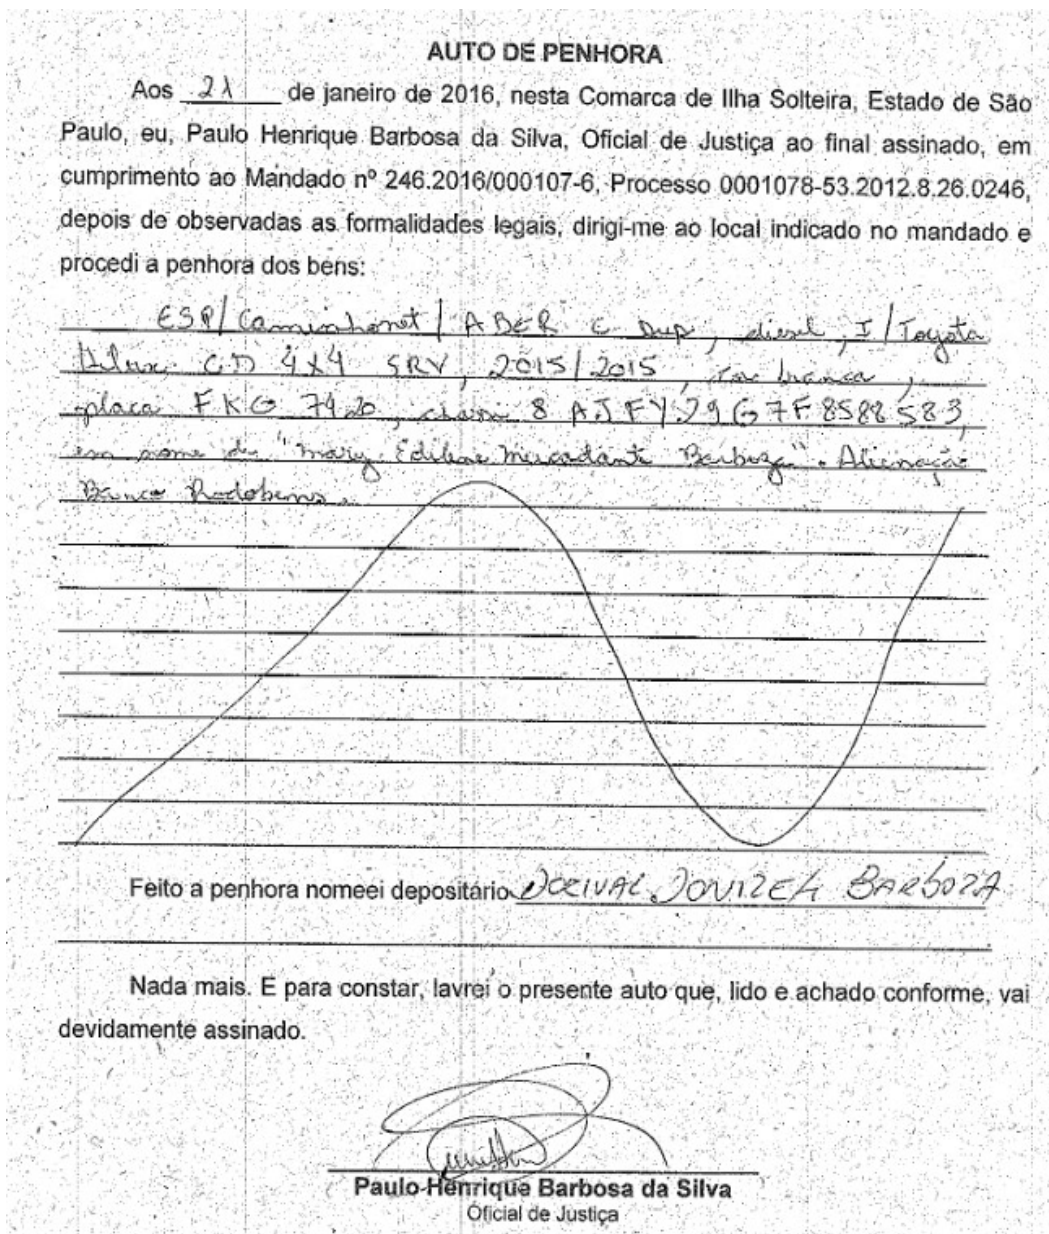 AUTO DE PENHORA
Aos 21 de janeiro de 2016, nesta Comarca de Ilha Solteira, Estado de São
Paulo, eu, Paulo Henrique Barbosa da Silva, Oficial de Justiça ao final assinado, em
cumprimento ao Mandado nº 246.2016/000107-6, Processo 0001078-53.2012.8.26.0246,
depois de observadas as formalidades legais, dirigi-me ao local indicado no mandado e
procedi a penhora dos bens:
ESP/Caminhonet/ABER C Dup, diesel, I/Toyota
Hilux CD 4x4 SRV, 2015/2015, cor branca,
placa FKG 7420, chassi 8AJFY29G7F8588583,
em nome de "Mary Edilene Mercadante Barboza". Alienação
Banco Rodobens.
Feito a penhora nomeei depositário DORIVAL DONIZEH BARBOZA
Nada mais. E para constar, lavrei o presente auto que, lido e achado conforme, vai
devidamente assinado.
Paulo Henrique Barbosa da Silva
Oficial de Justiça